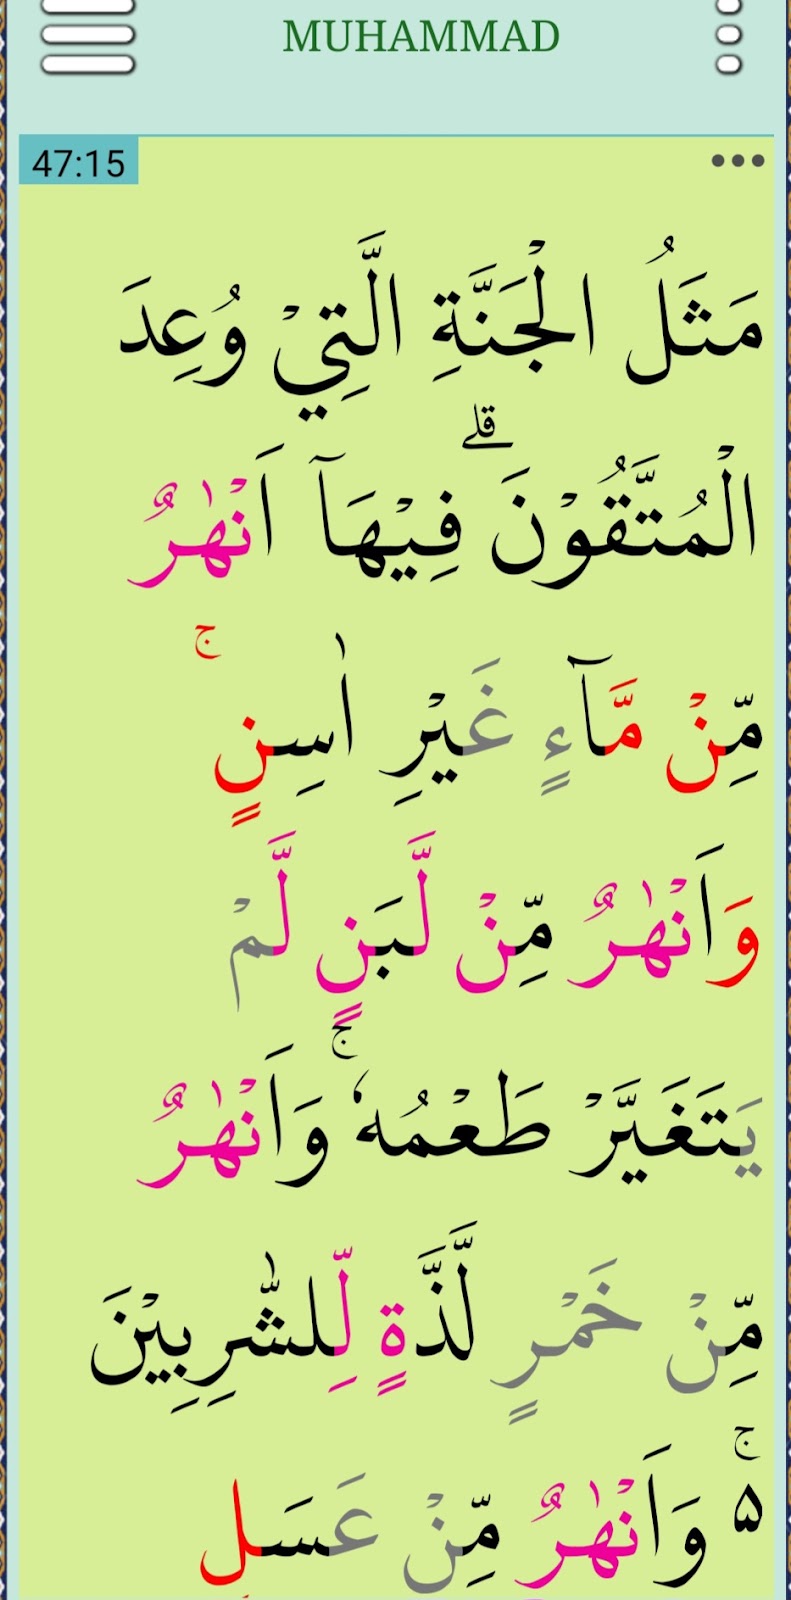 MUHAMMAD
47:15
مَثَلُ الْجَنَّةِ الَّتِيْ وُعِدَ
الْمُتَّقُوْنَ ۗ فِيْهَآ اَنْهٰرٌ
مِّنْ مَّاۤءٍ غَيْرِ اٰسِنٍ ۚ
وَاَنْهٰرٌ مِّنْ لَّبَنٍ لَّمْ
يَتَغَيَّرْ طَعْمُهٗ ۚ وَاَنْهٰرٌ
مِّنْ خَمْرٍ لَّذَّةٍ لِّلشّٰرِبِيْنَ
ۚ ە وَاَنْهٰرٌ مِّنْ عَسَلٍ